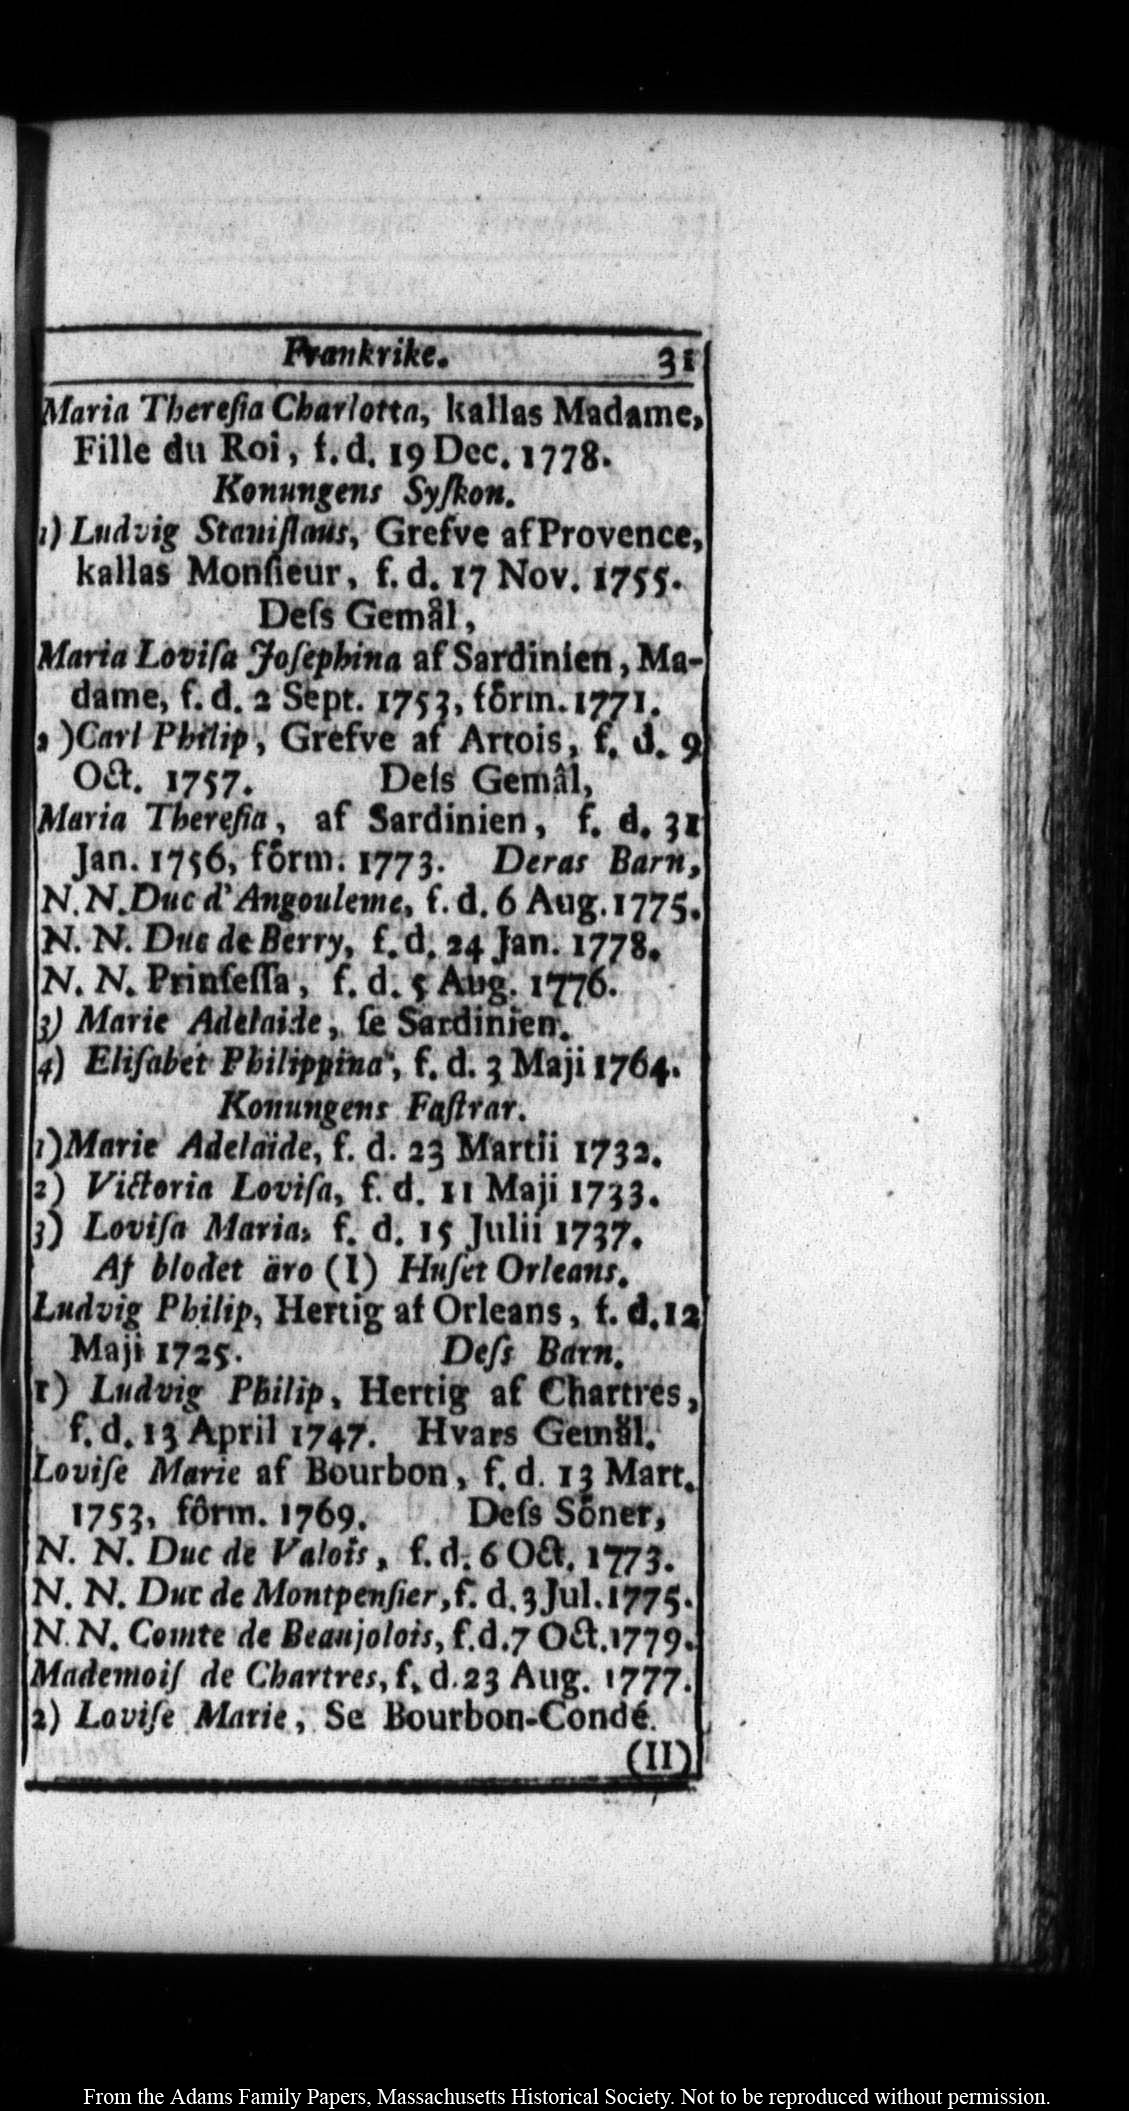 Frankrike. 31
Maria Thereſia Charlotta, kallas Madame,
Fille du Roi, f. d. 19 Dec. 1778.
Konungens Syſkon.
1) Ludvig Staniſlaus, Grefve af Provence,
kallas Monſieur, f. d. 17 Nov. 1755.
Deſs Gemål,
Maria Loviſa Joſephina af Sardinien, Ma-
dame, f. d. 2 Sept. 1753, förm. 1771.
2) Carl Philip, Grefve af Artois, f. d. 9
Oct. 1757. Deſs Gemål,
Maria Thereſia, af Sardinien, f. d. 31
Jan. 1756, förm. 1773. Deras Barn,
N. N. Duc d'Angouleme, f. d. 6 Aug. 1775.
N. N. Duc de Berry, f. d. 24 Jan. 1778.
N. N. Prinſeſſa, f. d. 5 Aug. 1776.
3) Marie Adelaide, ſe Sardinien.
4) Eliſabet Philippina, f. d. 3 Maji 1764.
Konungens Faſtrar.
1) Marie Adelaide, f. d. 23 Martii 1732.
2) Victoria Loviſa, f. d. 11 Maji 1733.
3) Loviſa Maria, f. d. 15 Julii 1737.
Af blodet äro (I) Huſet Orleans.
Ludvig Philip, Hertig af Orleans, f. d. 12
Maji 1725. Deſs Barn.
1) Ludvig Philip, Hertig af Chartres,
f. d. 13 April 1747. Hvars Gemål.
Loviſe Marie af Bourbon, f. d. 13 Mart.
1753, förm. 1769. Deſs Söner,
N. N. Duc de Valois, f. d. 6 Oct. 1773.
N. N. Duc de Montpenſier, f. d. 3 Jul. 1775.
N. N. Comte de Beaujolois, f. d. 7 Oct. 1779.
Mademoiſ de Chartres, f. d. 23 Aug. 1777.
2) Loviſe Marie, Se Bourbon-Condé.
(II)
From the Adams Family Papers, Massachusetts Historical Society. Not to be reproduced without permission.